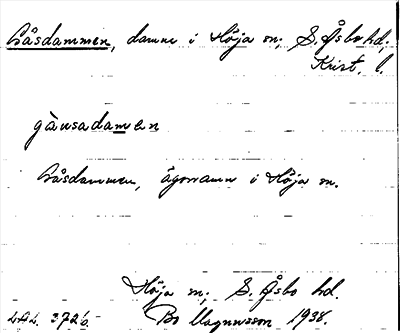 Gåsdammen, damm i Höja sn, S. Åsbo hd,
Krist. l.
gåusadamen
Gåsdammen, ägonamn i Höja sn.
Höja sn, S. Åsbo hd.
LAL 3726. Bo Magnusson 1938.